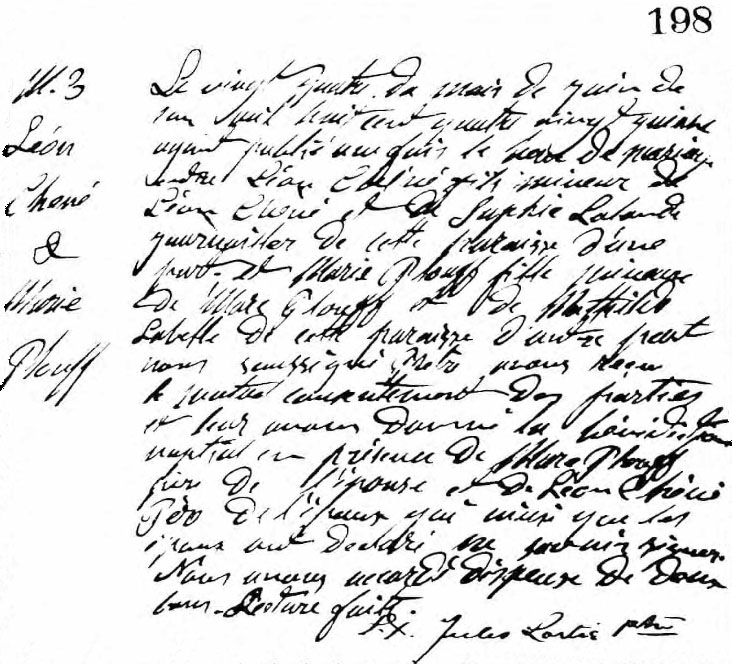 198
M. 3
Léon
Chené
&
Marie
Plouff
Le vingt quatre du mois de juin de
l'an mil huit cent quatre vingt quinze
ayant publié une fois le banc de mariage
entre Léon Chéné fils mineur de
Léon Chéné et de Sophie Lalande
journalier de cette paroisse d'une
part et Marie Plouff fille mineure
de Marc Plouff et de Mathilde
Labelle de cette paroisse d'autre part
nous soussigné Ptre avons reçu
le mutuel consentement des parties
et leur avons donné la bénédiction
nuptial en présence de Marc Plouff
père de l'épouse et de Léon Chéné
Père de l'époux qui ainsi que les
époux ont declaré ne savoir signer.
Nous avons accordé dispense de deux
bans. Lecture faite.
Jules Lortie ptre